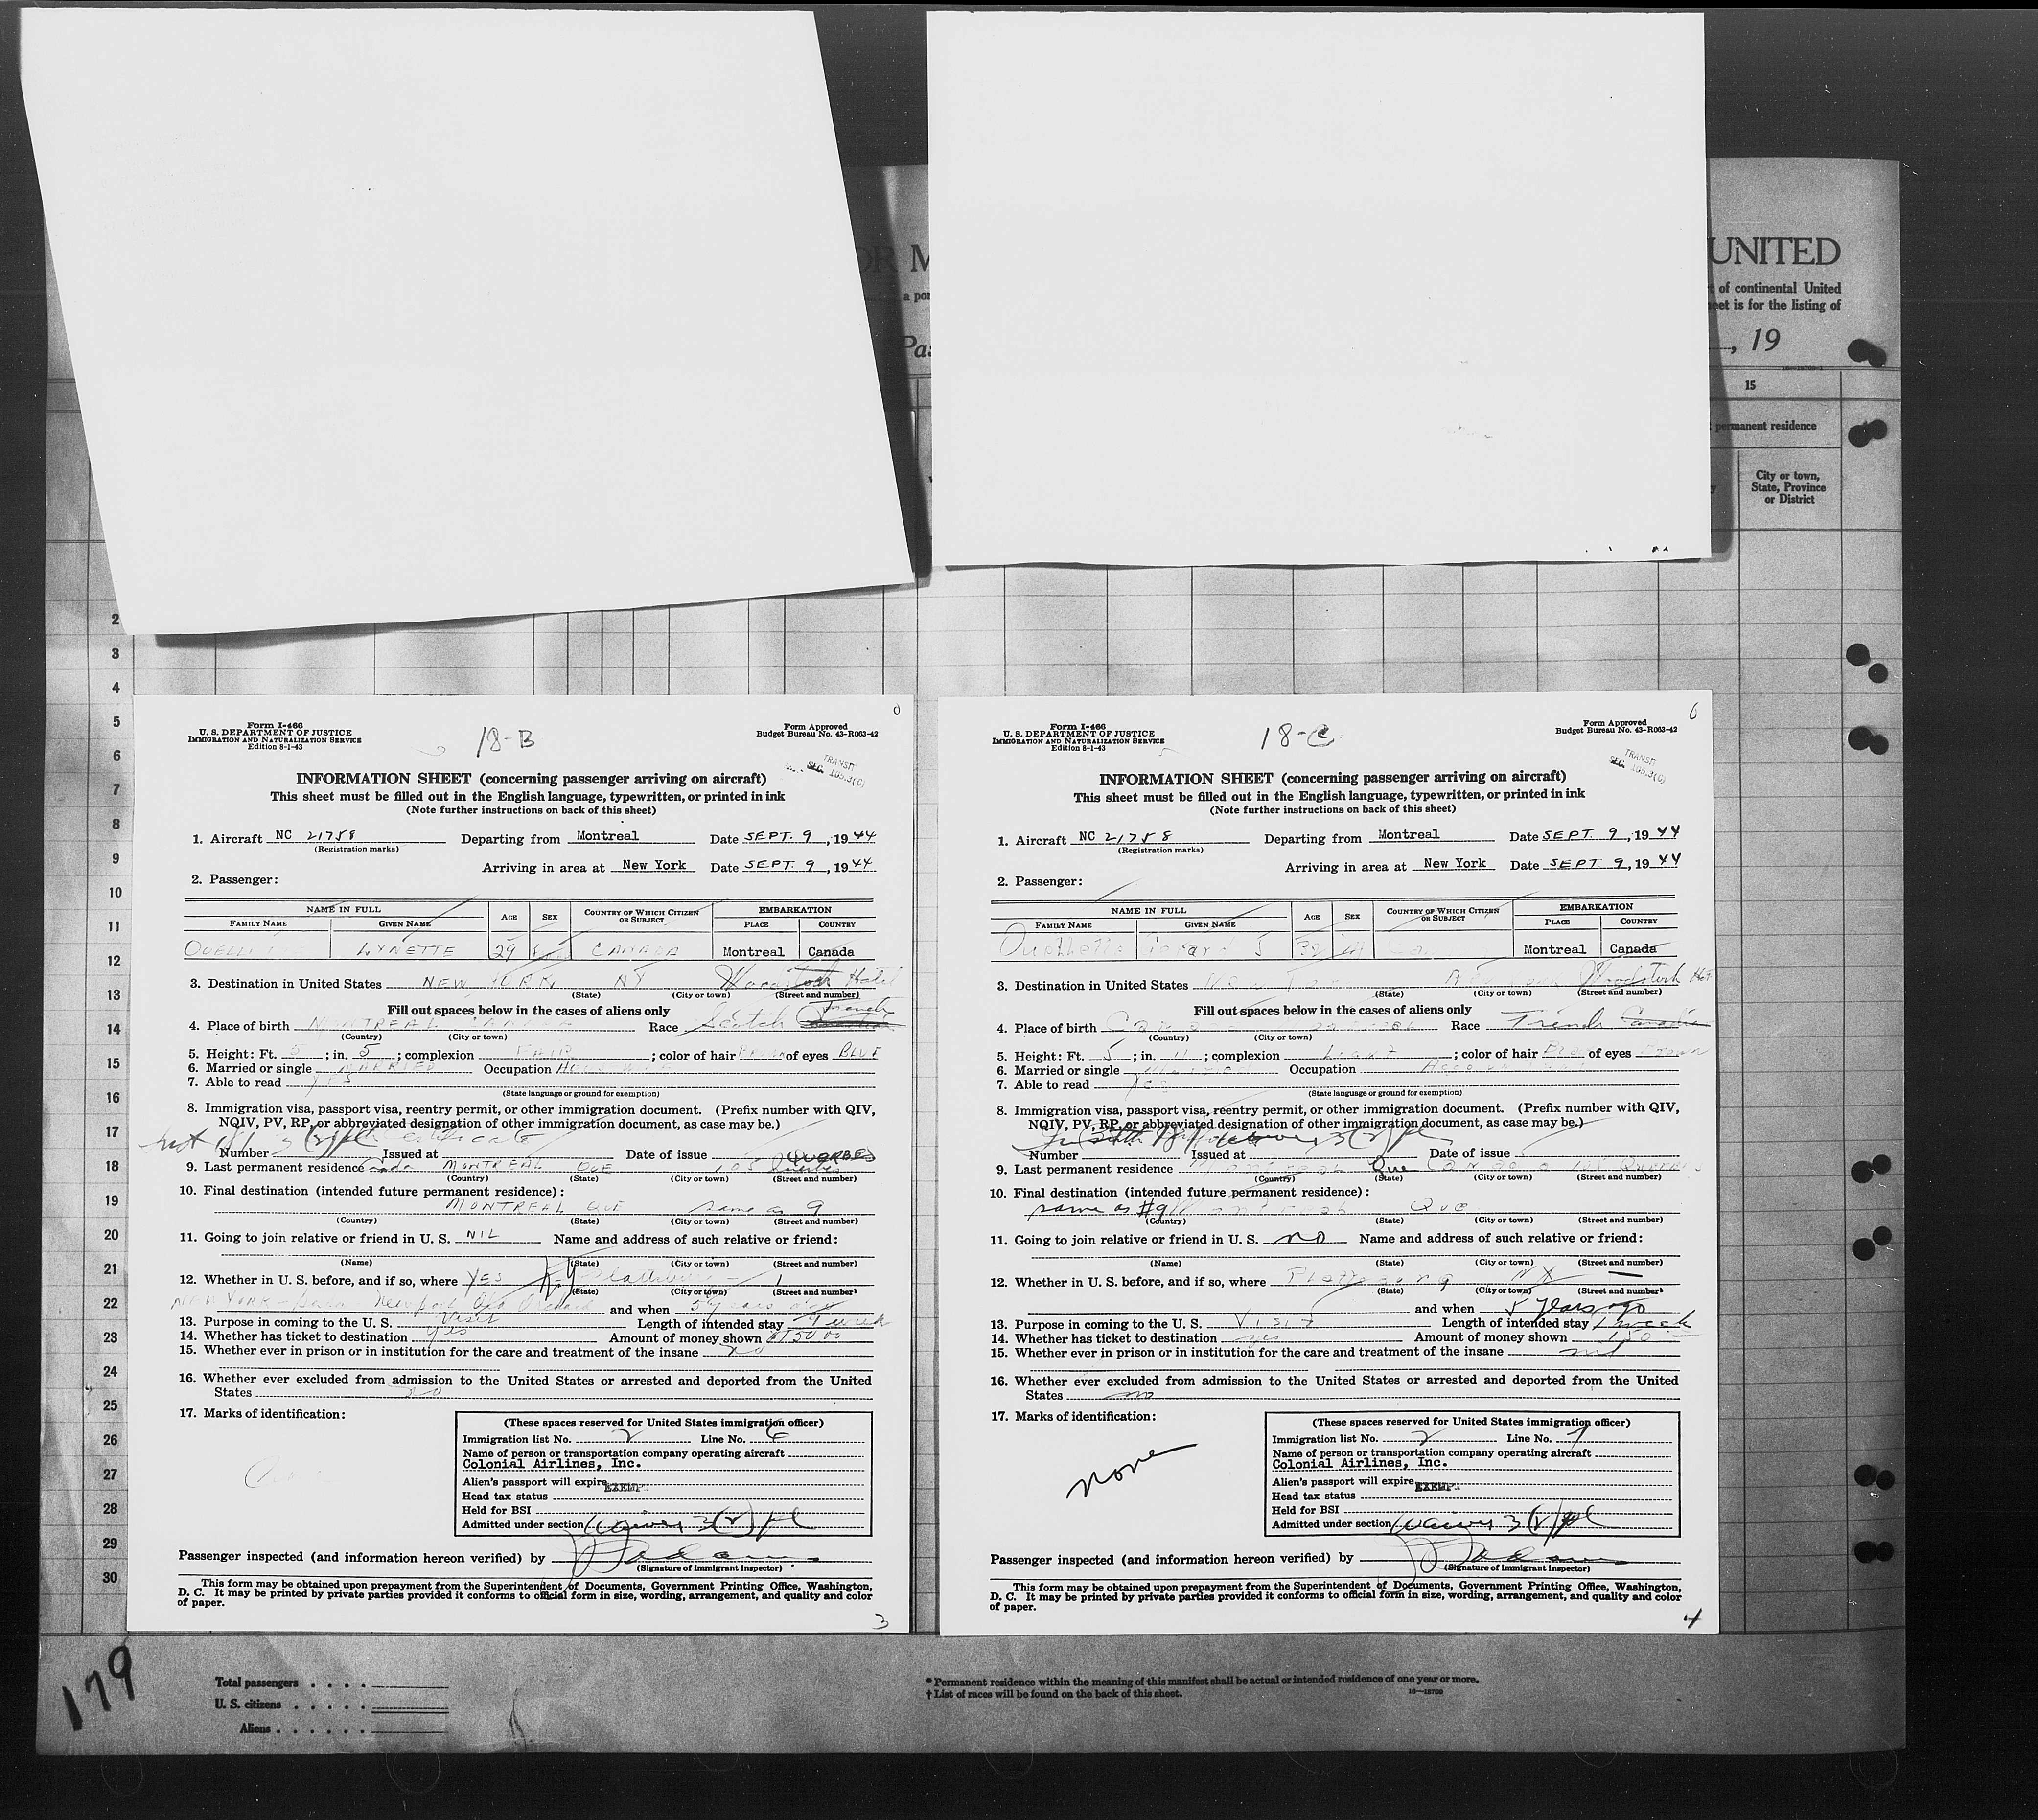 OR M
UNITED
a por
t of continental United
eet is for the listing of
Pas
, 19
15
permanent residence
City or town,
State, Province
or District
2
3
4
5
6
7
8
9
10
11
12
13
14
15
16
17
18
19
20
21
22
23
24
25
26
27
28
29
30
Form I-466
U. S. DEPARTMENT OF JUSTICE
IMMIGRATION AND NATURALIZATION SERVICE
Edition 8-1-43
18-B
Form Approved
Budget Bureau No. 43-R063-42
TRANSIT
SEC. 165.3(C)
INFORMATION SHEET (concerning passenger arriving on aircraft)
This sheet must be filled out in the English language, typewritten, or printed in ink
(Note further instructions on back of this sheet)
1. Aircraft NC 21758 Departing from Montreal Date SEPT. 9, 1944
(Registration marks)
Arriving in area at New York Date SEPT. 9, 1944
2. Passenger:
NAME IN FULL AGE SEX COUNTRY OF WHICH CITIZEN OR SUBJECT EMBARKATION
FAMILY NAME GIVEN NAME PLACE COUNTRY
OUELL LYNETTE 29 CANADA Montreal Canada
3. Destination in United States NEW YORK NY Woodstock Hotel
(State) (City or town) (Street and number)
Fill out spaces below in the cases of aliens only
French
4. Place of birth MONTREAL CANADA Race Scotch
(Country) (City or town)
5. Height: Ft. 5; in. 5; complexion FAIR; color of hair of eyes BLUE
6. Married or single MARRIED Occupation HOUSEWIFE
7. Able to read YES
(State language or ground for exemption)
8. Immigration visa, passport visa, reentry permit, or other immigration document. (Prefix number with QIV,
NQIV, PV, RP, or abbreviated designation of other immigration document, as case may be.)
certificate
Number Issued at Date of issue QUERBES
9. Last permanent residence MONTREAL QUE 105 Querbes
(Country) (State) (City or town) (Street and number)
10. Final destination (intended future permanent residence):
MONTREAL QUE same as 9
(Country) (State) (City or town) (Street and number)
11. Going to join relative or friend in U. S. NIL Name and address of such relative or friend:
(Name) (State) (City or town) (Street and number)
12. Whether in U. S. before, and if so, where YES N.Y.
(State) (City or town) (Street and number)
NEW YORK Newport Old Orchard and when 5 years ago
13. Purpose in coming to the U. S. Visit Length of intended stay 1 week
14. Whether has ticket to destination yes Amount of money shown $150.00
15. Whether ever in prison or in institution for the care and treatment of the insane no
16. Whether ever excluded from admission to the United States or arrested and deported from the United
States no
17. Marks of identification:
(These spaces reserved for United States immigration officer)
Immigration list No. 2 Line No. 6
Name of person or transportation company operating aircraft
Colonial Airlines, Inc.
Alien's passport will expire
EXEMPT
Head tax status
Held for BSI
Admitted under section waiver 3(2)
Passenger inspected (and information hereon verified) by
(Signature of immigrant inspector)
This form may be obtained upon prepayment from the Superintendent of Documents, Government Printing Office, Washington,
D. C. It may be printed by private parties provided it conforms to official form in size, wording, arrangement, and quality and color
of paper.
3
Form I-466
U. S. DEPARTMENT OF JUSTICE
IMMIGRATION AND NATURALIZATION SERVICE
Edition 8-1-43
18-C
6
Form Approved
Budget Bureau No. 43-R063-42
TRANSIT
SEC. 165.3(C)
INFORMATION SHEET (concerning passenger arriving on aircraft)
This sheet must be filled out in the English language, typewritten, or printed in ink
(Note further instructions on back of this sheet)
1. Aircraft NC 21758 Departing from Montreal Date SEPT. 9, 1944
(Registration marks)
Arriving in area at New York Date SEPT. 9, 1944
2. Passenger:
NAME IN FULL AGE SEX COUNTRY OF WHICH CITIZEN OR SUBJECT EMBARKATION
FAMILY NAME GIVEN NAME PLACE COUNTRY
Ouellette J 32 M Montreal Canada
3. Destination in United States Woodstock Hot
(State) (City or town) (Street and number)
Fill out spaces below in the cases of aliens only
4. Place of birth Race French Canadian
(Country) (City or town)
5. Height: Ft. 5; in. 11; complexion Light; color of hair of eyes Brown
6. Married or single Married Occupation
7. Able to read Yes
(State language or ground for exemption)
8. Immigration visa, passport visa, reentry permit, or other immigration document. (Prefix number with QIV,
NQIV, PV, RP, or abbreviated designation of other immigration document, as case may be.)
waiver 3(2)
Number Issued at Date of issue
9. Last permanent residence Montreal Que Canada 105 Querbes
(Country) (State) (City or town) (Street and number)
10. Final destination (intended future permanent residence):
same as #9 Montreal Que
(Country) (State) (City or town) (Street and number)
11. Going to join relative or friend in U. S. no Name and address of such relative or friend:
(Name) (State) (City or town) (Street and number)
12. Whether in U. S. before, and if so, where NY
(State) (City or town) (Street and number)
and when 5 years ago
13. Purpose in coming to the U. S. Visit Length of intended stay 1 week
14. Whether has ticket to destination yes Amount of money shown 150
15. Whether ever in prison or in institution for the care and treatment of the insane
16. Whether ever excluded from admission to the United States or arrested and deported from the United
States no
17. Marks of identification:
none
(These spaces reserved for United States immigration officer)
Immigration list No. 2 Line No. 7
Name of person or transportation company operating aircraft
Colonial Airlines, Inc.
Alien's passport will expire
EXEMPT
Head tax status
Held for BSI
Admitted under section waiver 3(2)
Passenger inspected (and information hereon verified) by
(Signature of immigrant inspector)
This form may be obtained upon prepayment from the Superintendent of Documents, Government Printing Office, Washington,
D. C. It may be printed by private parties provided it conforms to official form in size, wording, arrangement, and quality and color
of paper.
4
179
Total passengers . . . .
U. S. citizens . . . . .
Aliens . . . . . .
* Permanent residence within the meaning of this manifest shall be actual or intended residence of one year or more.
† List of races will be found on the back of this sheet.